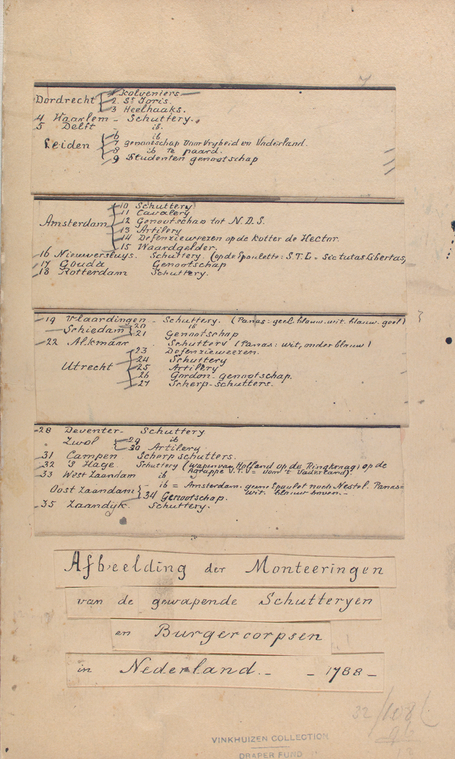 1 Kolveniers.
Dordrecht 2. St Joris.
3 Heelhaaks.
4 Haarlem - Schuttery.
5 Delft ib.
6 ib
Leiden 7 genootschap voor Vryheid en Vaderland.
8 ib te paard.
9 Studenten genootschap
10 Schuttery
11 Cavalery
Amsterdam 12 Genootschap tot N.D.S.
13 Artilery
14 Defenzieweezen op de Kotter de Hector.
15 Waardgelder.
16 Nieuwersluys. Schuttery. (op de Epoulette: S.T.L = Sic tutas Libertas,
17 Gouda Genootschap
18 Rotterdam Schuttery.
19 Vlaardingen - Schuttery. (Panas: geel. blauw. wit. blauw. geel)
Schiedam 20
21 Genootschap
22 Alkmaar Schuttery (Panas: wit, onder blauw)
23 Defenzieweezen.
24 Schuttery
Utrecht 25 Artilery
26 Gordon-genootschap.
27 Scherp-schutters.
28 Deventer - Schuttery
Zwol 29 ib
30 Artilery
31 Campen Scherpschutters.
32 's Hage Schuttery (wapen van Holland op de Ringkraag; op de
Agrappe V.T.V= voor 't Vaderland)
33 West Zaandam ib
- ib = Amsterdam. geene Epaulet noch Nestel. Panas=
Oost Zaandam wit. blauw boven. -
34 Genootschap.
35 Zaandyk Schuttery.
Afbeelding der Monteeringen
van de gewapende Schutteryen
en Burgercorpsen
in Nederland. - - 1788 -
32/108
VINKHUIZEN COLLECTION
DRAPER FUND